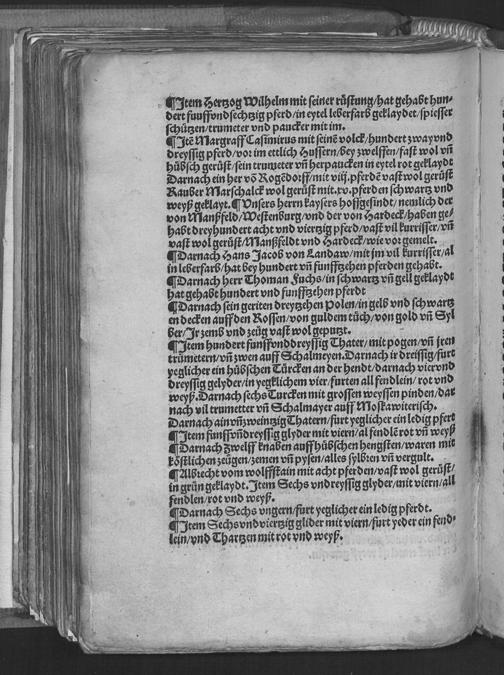 ¶Item Hertzog Wilhelm mit seiner rüstung/hat gehabt hun-
dert fuuffvndsechtzig pferd/in eytel leberfarb geklaydet/spiesser
schützen/trumeter vnd paucker mit im.
¶Itē Margraff Casimirus mit seinē volck/hundert zway vnd
dreyssig pferd/vor im ettlich Hussern/bey zwelffen/fast wol vñ
hübsch gerüst/sein trumeter vñ herpaucken in eytel rot geklaydt
Darnach ein her vō Rogēdorff/mit viij.pferdē vast wol gerüst
Rauber Marschalck wol gerüst mit.xv.pferden schwartz vnd
weyß geklayt.¶Vnsers herrn kaysers hoffgesindt/nemlich der
von Manßfeld/Westenburg/vnd der von Hardeck/haben ge-
habt dreyhundert acht vnd viertzig pferd/vast vil kurrisser/vñ
vast wol gerüst/Manßfeldt vnd Hardeck/wie vor gemelt.
¶Darnach Hans Jacob von Landaw/mit im vil kurrisser/al
in leberfarb/hat bey hundert vñ funfftzehen pferden gehabt.
¶Darnach herr Thoman Fuchs/in schwartz vñ gell geklaydt
hat gehabt hundert vnd funfftzehen pferdt
¶Darnach sein geriten dreytzehen Polen/in gelb vnd schwartz
en decken auff den Rossen/von guldem tůch/von gold vñ Syl
ber/Ir zemb vnd zeüg vast wol geputzt.
¶Item hundert funffvnddreyssig Thater/mit pogen/vñ jren
trumetern/vñ zwen auff Schalmeyen.Darnach ir dreissig/furt
yeglicher ein hübschen Türcken an der hendt/darnach vier vnd
dreyssig gelyder/in yegklichem vier/furten all fendlein/rot vnd
weyß.Darnach sechs Turcken mit grossen weyssen pinden/dar
nach vil trumetter vñ Schalmayer auff Moskawiterisch.
Darnach ain vñ zweintzig Thatern/furt yeglicher ein ledig pfert
¶Item funffvñdreyssig glyder mit viern/al fendlē rot vñ weyß
¶Darnach zwelff knaben auff hübschen hengsten/waren mit
köstlichen zeügen/zemen vñ pysen/alles sylbren vñ vergult.
¶Albrecht vom wolffstain mit acht pferden/vast wol gerüst/
in grün geklaydt.Item Sechs vndreyssig glyder/mit viern/all
fendlen/rot vnd weyß.
¶Darnach Sechs vngern/furt yeglicher ein ledig pferdt.
¶Item Sechs vnd viertzig glider mit viern/furt yeder ein fend-
lein/vnd Thartzen mit rot vnd weyß.